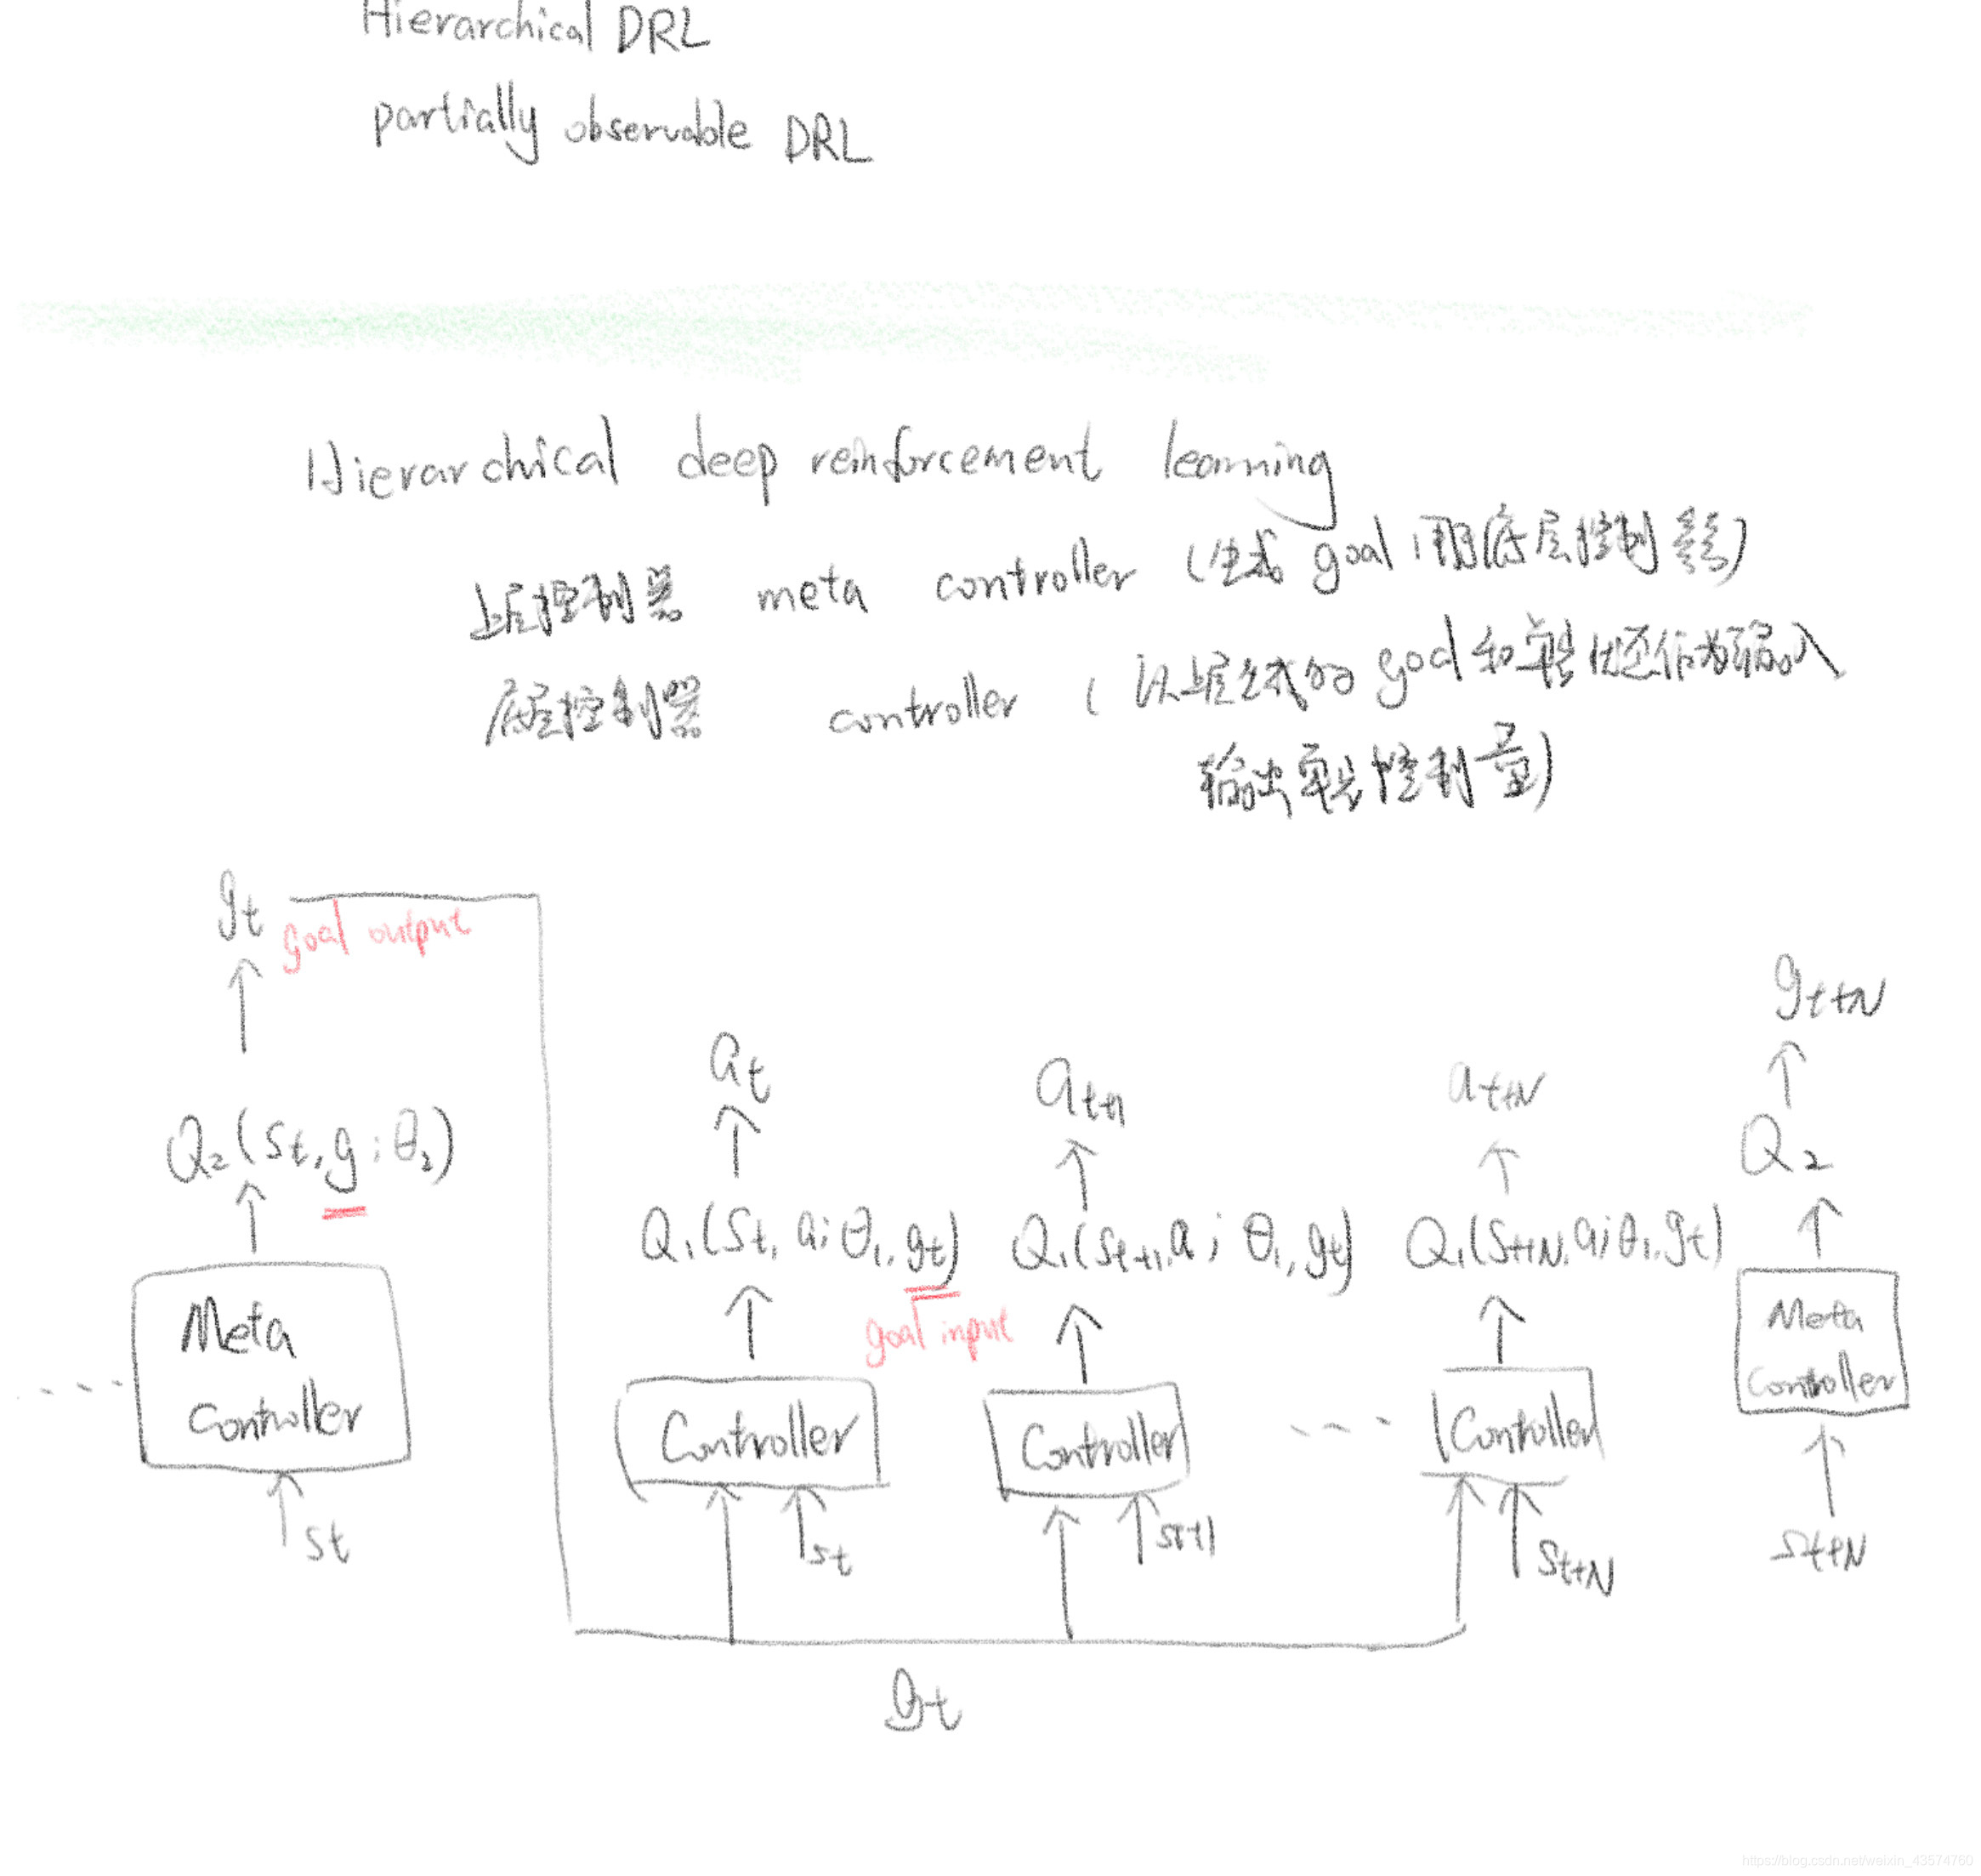 Hierarchical DRL
partially observable DRL
Hierarchical deep reinforcement learning
上层控制器 meta controller (生成 goal 用底层控制器)
底层控制器 controller (以上层生成的 goal 和 状态作为输入
输出 控制量)
g_t
goal output
g_{t+N}
a_t
a_{t+1}
a_{t+N}
Q_2(s_t, g; θ_2)
Q_2
Q_1(s_t, a; θ_1, g_t)
Q_1(s_{t+1}, a; θ_1, g_t)
Q_1(s_{t+N}, a; θ_1, g_t)
goal input
Meta Controller
Controller
Controller
Controller
Meta Controller
s_t
s_t
s_{t+1}
s_{t+N}
s_{t+N}
g_t
https://blog.csdn.net/weixin_43574760